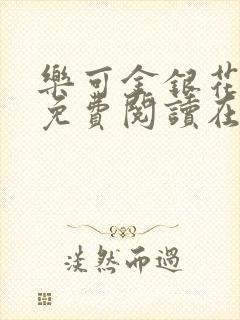 樂可金銀花
免費閱讀在
淡然而過